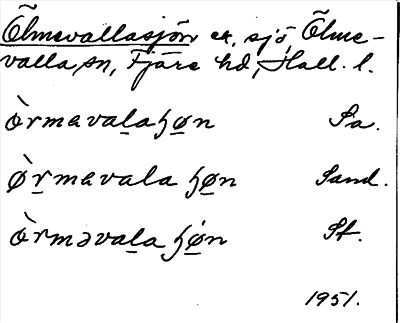 Õlmevallasjön ex, sjö, Õlme-
valla sn, Fjäre hd, Hall. l.
òrmavala ɧøn Sa.
ø̀rmavala ɧøn Sand.
òrməvala ɧøn Sf.
1951.